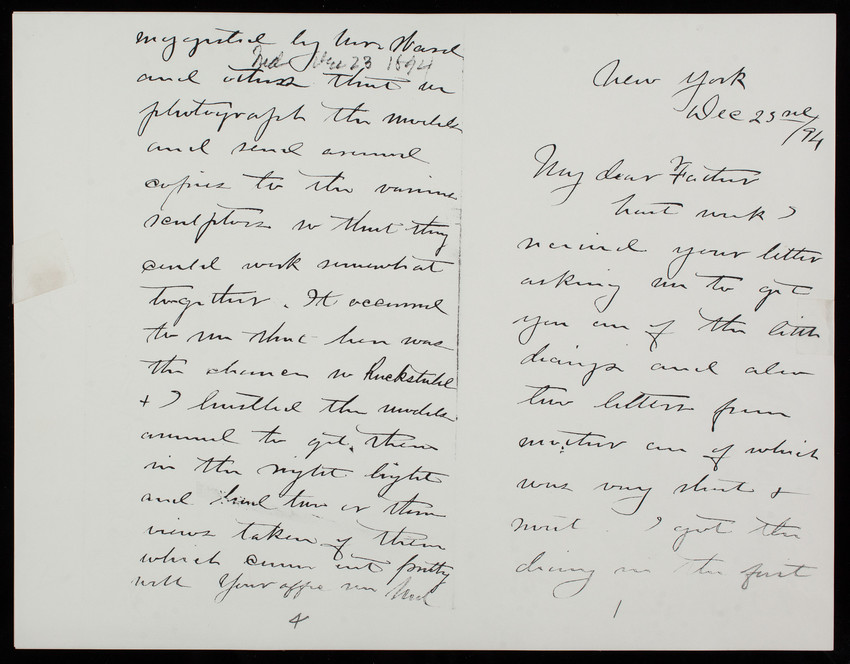 suggested by Mr Ward
Ned Dec 23 1894
and others that we
photograph the models
and send around
copies to the various
sculptors so that they
could work somewhat
together. It occurred
to me that here was
the chance so Ruckstuhl
& I hustled the models
around to get them
in the right light
and had two or three
views taken of them
which came out pretty
well Your affec son Ned
4
New York
Dec 23rd/94
My dear Father
Last week I
received your letter
asking me to get
you one of the little
diaries and also
two letters from
mother one of which
was very short &
sweet. I got the
diary in the first
1